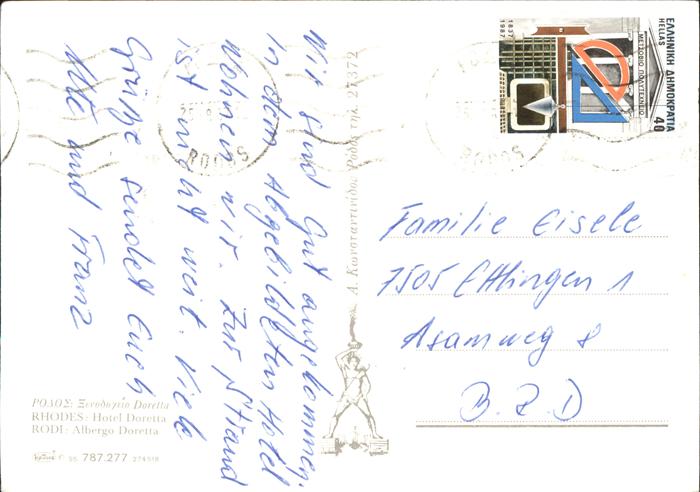 Wir sind gut angekommen.
In dem Abgebildeten Hotel
Wohnen wir. Zum Strand
ist nicht weit. Viele
Grüße sendet Euch
Ute und Franz
Familie Eisele
7505 Ettlingen 1
Asamweg 8
B.R.D
ΕΛΛΗΝΙΚΗ ΔΗΜΟΚΡΑΤΙΑ
HELLAS
40
ΜΕΤΣΟΒΙΟ ΠΟΛΥΤΕΧΝΕΙΟ
1837
1987
Α. Κωνσταντινίδη, Ρόδος τηλ. 27.372
ΡΟΔΟΣ: Ξενοδοχείο Doretta
RHODES: Hotel Doretta
RODI: Albergo Doretta
55 787.277 274518
RODOS